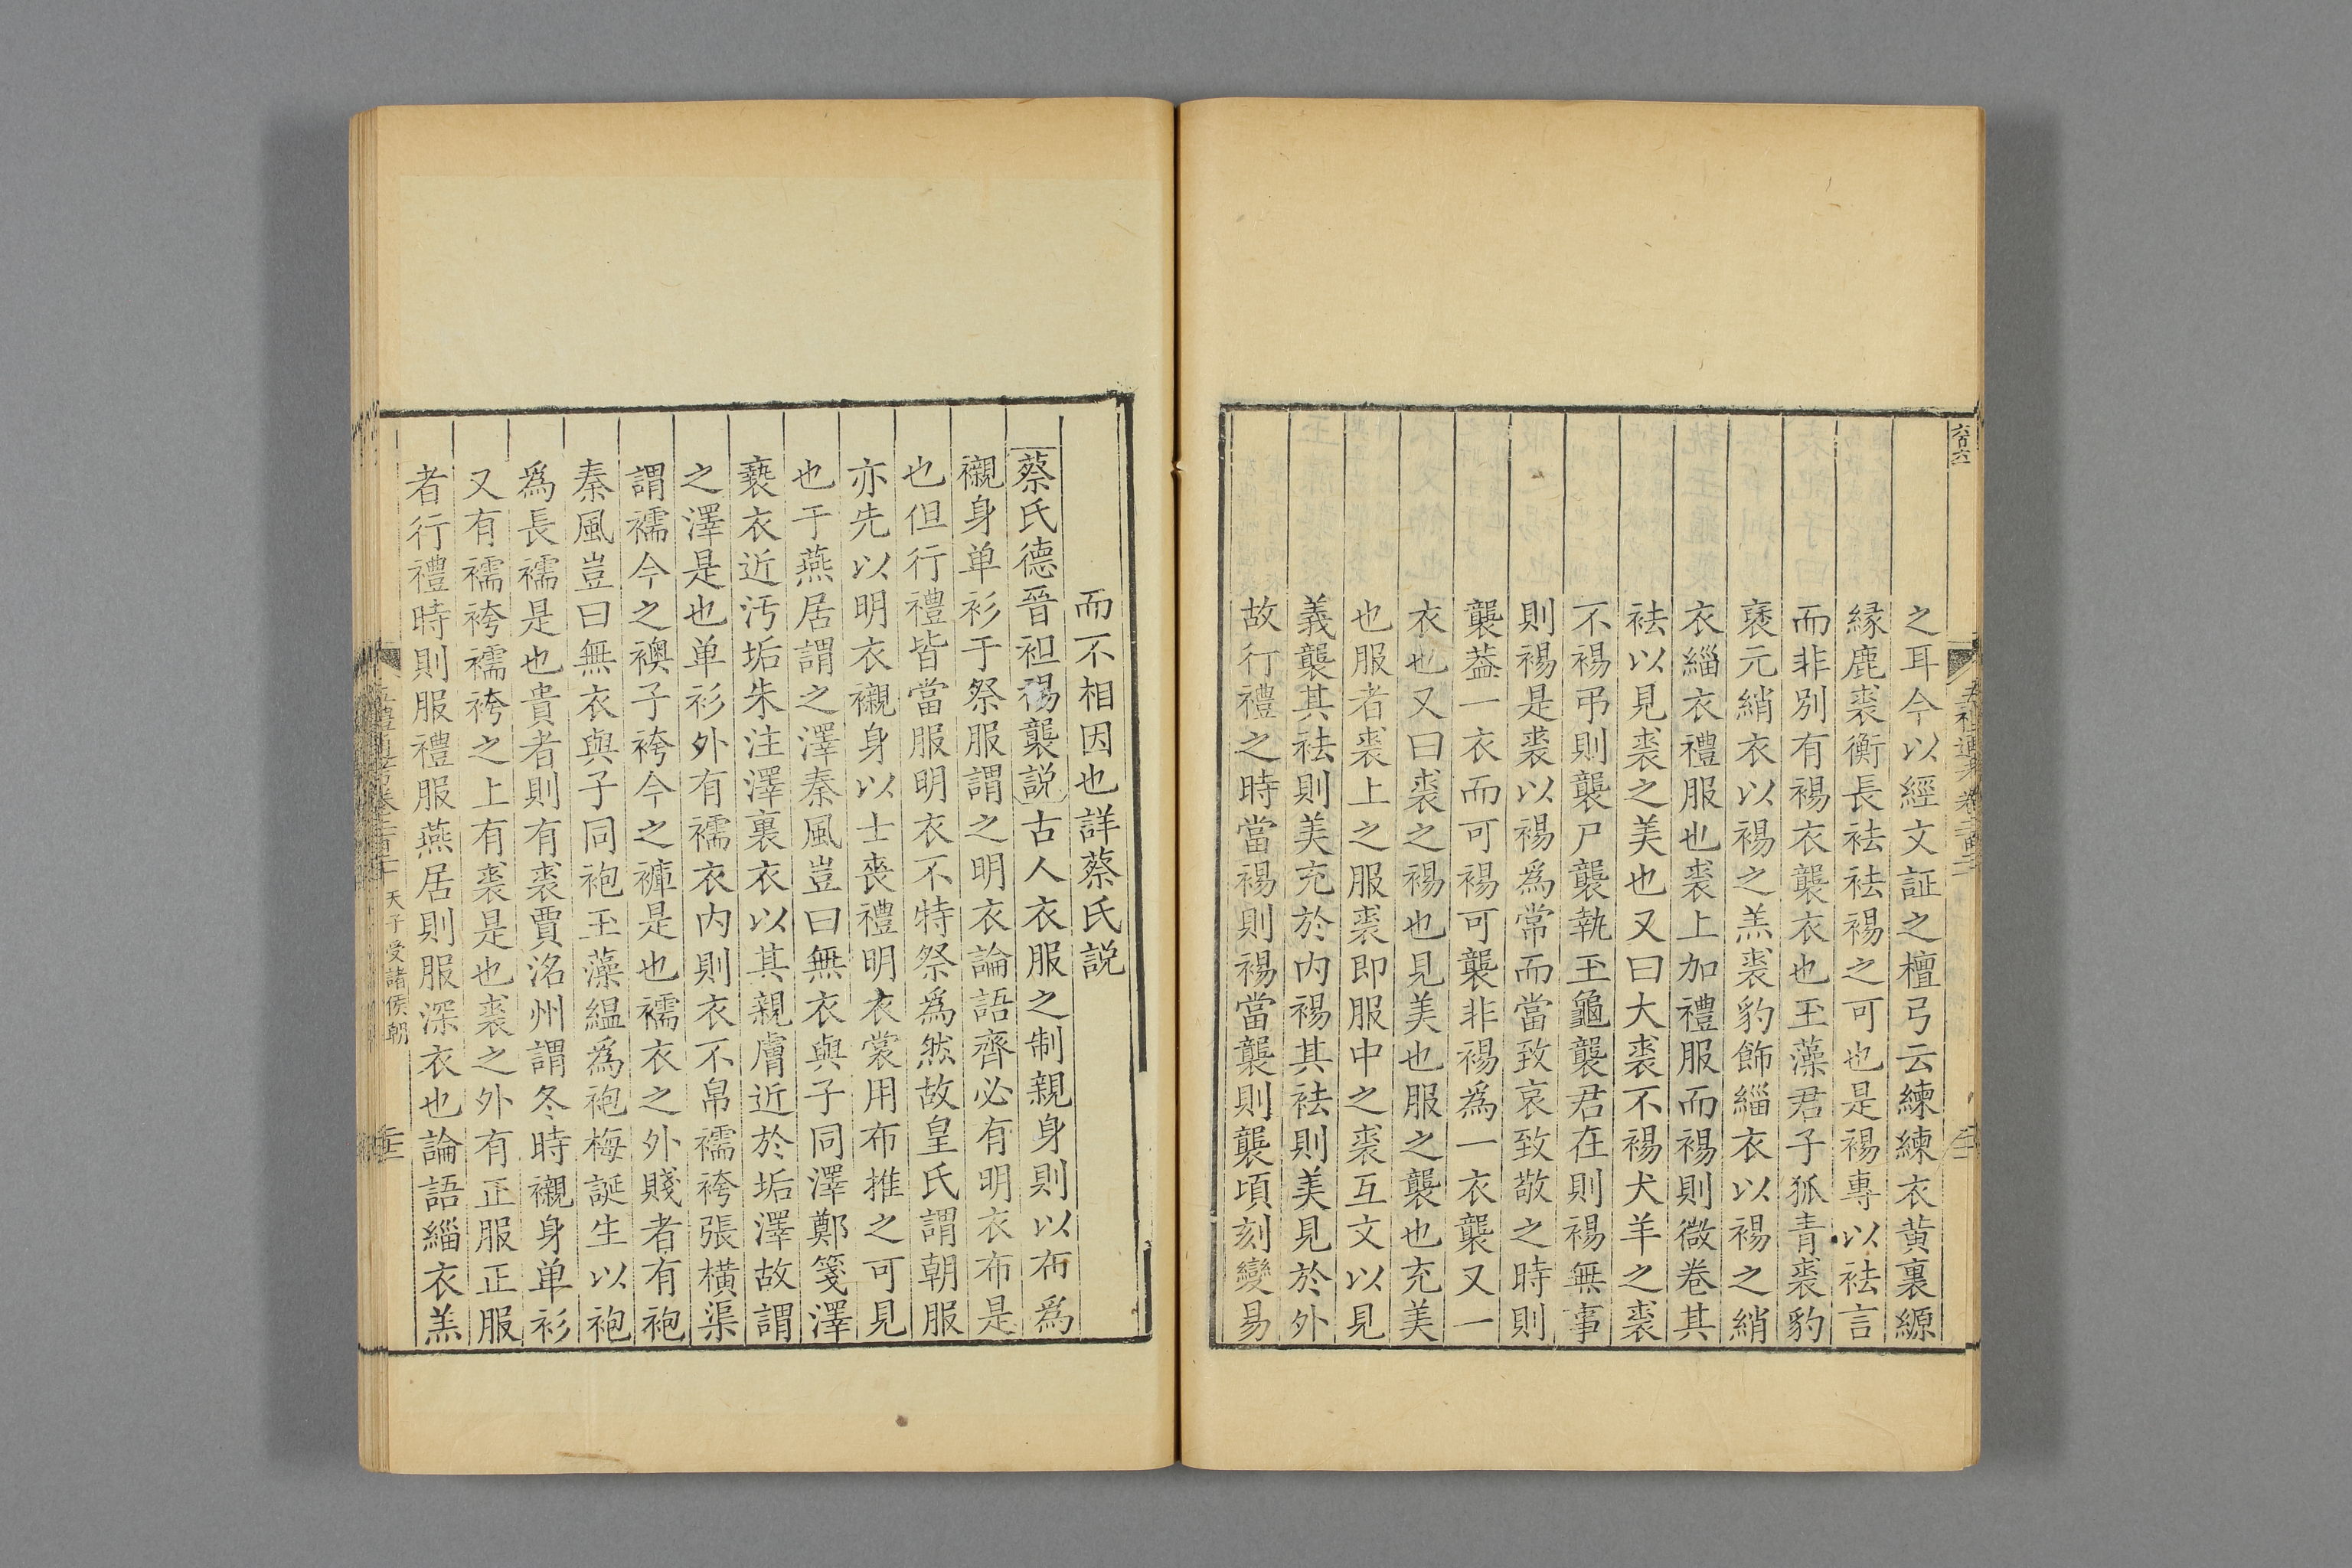 之耳今以經文証之檀弓云練練衣黄裏縓
縁鹿裘衡長袪袪裼之可也是裼專以袪言
而非別有裼衣襲衣也玉藻君子狐青裘豹
褎元綃衣以裼之羔裘豹飾緇衣以裼之綃
衣緇衣禮服也裘上加禮服而裼則微卷其
袪以見裘之美也又曰大裘不裼犬羊之裘
不裼弔則襲尸襲執玉龜襲君在則裼無事
則裼是裘以裼爲常而當致哀致敬之時則
襲葢一衣而可裼可襲非裼爲一衣襲又一
衣也又曰裘之裼也見美也服之襲也充美
也服者裘上之服裘即服中之裘互文以見
義襲其袪則美充於内裼其袪則美見於外
故行禮之時當裼則裼當襲則襲頃刻變易
而不相因也詳蔡氏説
蔡氏德晉袒裼襲説古人衣服之制親身則以布爲
襯身单衫于祭服謂之明衣論語齊必有明衣布是
也但行禮皆當服明衣不特祭爲然故皇氏謂朝服
亦先以明衣襯身以士喪禮明衣裳用布推之可見
也于燕居謂之澤秦風豈曰無衣與子同澤鄭箋澤
褻衣近汚垢朱注澤裏衣以其親膚近於垢澤故謂
之澤是也单衫外有襦衣内則衣不帛襦袴張横渠
謂襦今之襖子袴今之褲是也襦衣之外賤者有袍
秦風豈曰無衣與子同袍玉藻緼爲袍梅誕生以袍
爲長襦是也貴者則有裘賈洺州謂冬時襯身单衫
又有襦袴襦袴之上有裘是也裘之外有正服正服
者行禮時則服禮服燕居則服深衣也論語緇衣羔
天子受諸侯朝